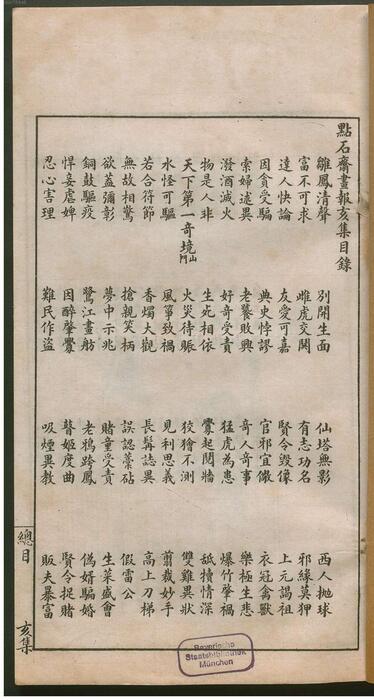 點石齋畫報亥集目錄
雛鳳清聲 別開生面 仙塔無影 西人拋球
富不可求 雌虎交鬩 有志功名 邪緣莫狎
達人快論 友愛可嘉 賢令毀像 上元謁祖
因貪受騙 典史悖謬 官邪宜儆 衣冠禽獸
索婦述異 老饕敗興 奇人奇事 樂極生悲
潑酒滅火 好奇受責 猛虎為患 爆竹肇禍
物是人非 生死相依 釁起鬩牆 舐犢情深
天下第一奇境山門 火災待賑 狡獪不測 雙雞異狀
水怪可驅 風箏致禍 見利思義 剪裁妙手
若合符節 香燭大觀 長髯誌異 高上刀梯
無故相驚 搶親笑柄 誤認藁砧 假雷公
欲蓋彌彰 夢中示兆 賭童受責 生菜盛會
銅鼓驅疫 鷺江畫舫 老鴉跨鳳 偽婿騙婚
悍妾虐婢 因醉肇釁 瞽姬度曲 賢令捉賭
忍心害理 難民作盜 吸煙異教 販夫暴富
總目 亥集
Bayerische
Staatsbibliothek
München